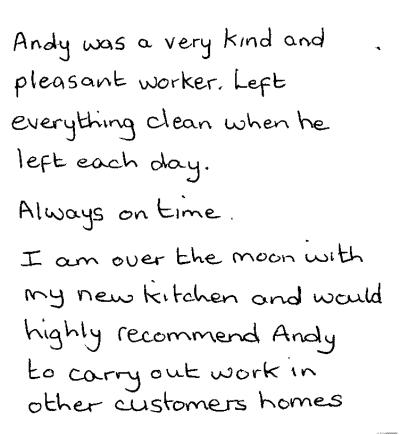 Andy was a very kind and
pleasant worker. Left
everything clean when he
left each day.
Always on time.
I am over the moon with
my new kitchen and would
highly recommend Andy
to carry out work in
other customers homes